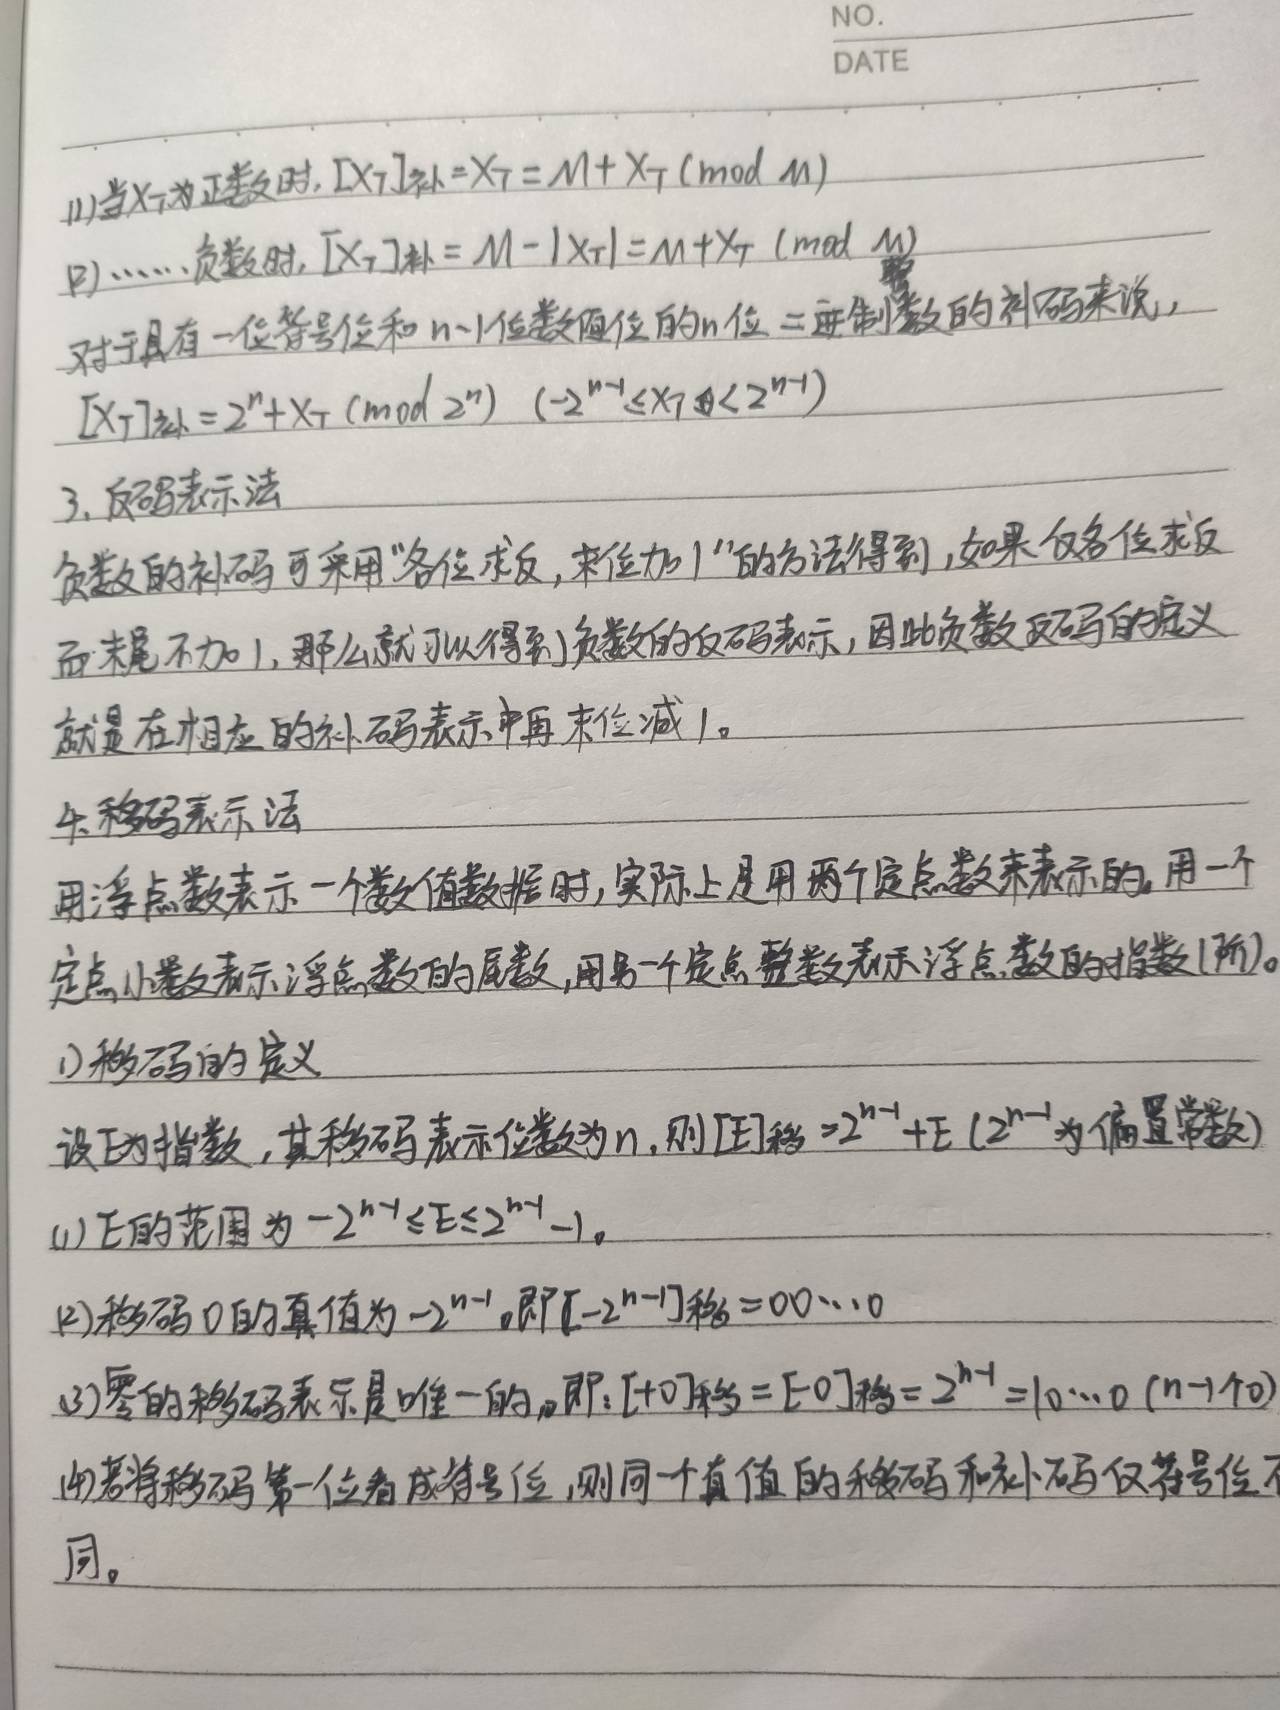 NO.
DATE
(1)当X_T为正数时,[X_T]补=X_T=M+X_T(mod M)
(2)……负数时,[X_T]补=M-|X_T|=M+X_T (mod M)
整
对于具有一位符号位和n-1位数值位的n位二进制数的补码来说,
[X_T]补=2^n+X_T (mod 2^n) (-2^{n-1}≤X_T<2^{n-1})
3.反码表示法
负数的补码可采用"各位求反,末位加1"的方法得到,如果仅各位求反
而末尾不加1,那么就可以得到负数的反码表示,因此负数反码的定义
就是在相应的补码表示中再末位减1。
4.移码表示法
用浮点数表示一个数值数据时,实际上是用两个定点数来表示的。用一个
定点小数表示浮点数的尾数,用另一个定点整数表示浮点数的指数(阶)。
1)移码的定义
设E为指数,其移码表示位数为n,则[E]移=2^{n-1}+E (2^{n-1}为偏置常数)
(1)E的范围为-2^{n-1}≤E≤2^{n-1}-1。
(2)移码0的真值为-2^{n-1}。即[-2^{n-1}]移=00…0
(3)零的移码表示是唯一的。即:[+0]移=[-0]移=2^{n-1}=10…0 (n-1个0)
(4)若将移码第一位看成符号位,则同一个真值的移码和补码仅符号位不
同。